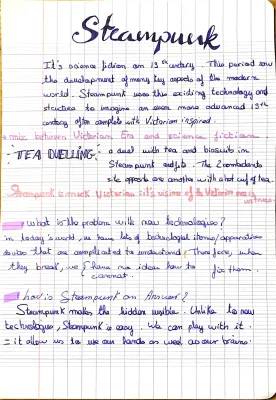 Steampunk
It's science fiction on 19th century. This period saw
the development of many key aspects of the modern
world. Steampunk uses this existing technology and
structure to imagine an even more advanced 19th
century often complete with Victorian inspired.
+ mix between Victorian Era and science fiction
• TEA DUELLING: a duel with tea and biscuits in
Steampunk outfits. The 2 combatants
sits opposite one another with a cup of tea.
Steampunk is much Victorian : it's visions of the Victorian
what is the problem with new technologies?
in today's world, we have lots of technological items/apparatus/
devices that are complicated to understand; Therefore, when
they break, we have no idea how to fix them.
cannot
how is Steampunk an Answer?
Steampunk makes the hidden visible. Unlike to new
technologies, Steampunk is easy. We can play with it.
= it allow us to use our hands as well as our brains.